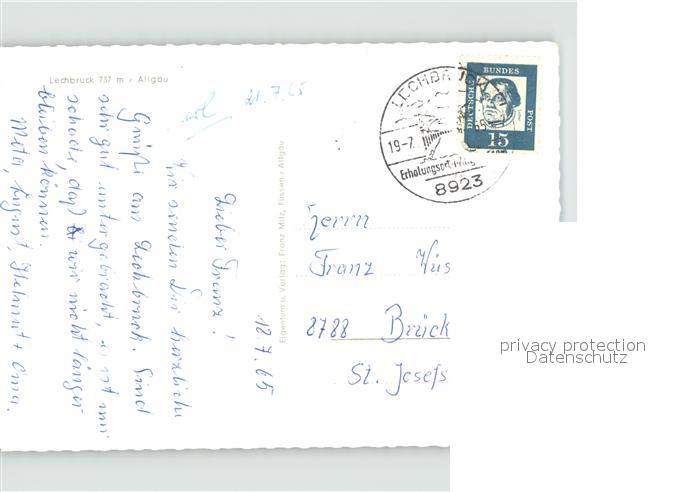 Lechbruck 737 m · Allgäu
21.7.65
18.7.65
Lieber Franz!
Wir senden Dir herzliche
Grüße aus Lechbruck. Sind
sehr gut untergebracht, es ist nur
schade, daß wir nicht länger
bleiben können.
Meta, August, Helmut + Oma.
Eigentum u. Verlag: Franz Milz, Füssen · Allgäu
LECHBRUCK
19-7.
65
Erholungsort
8923
DEUTSCHE
BUNDES
POST
15
Herrn
Franz
8788 Brück
St. Josefs
privacy protection
Datenschutz